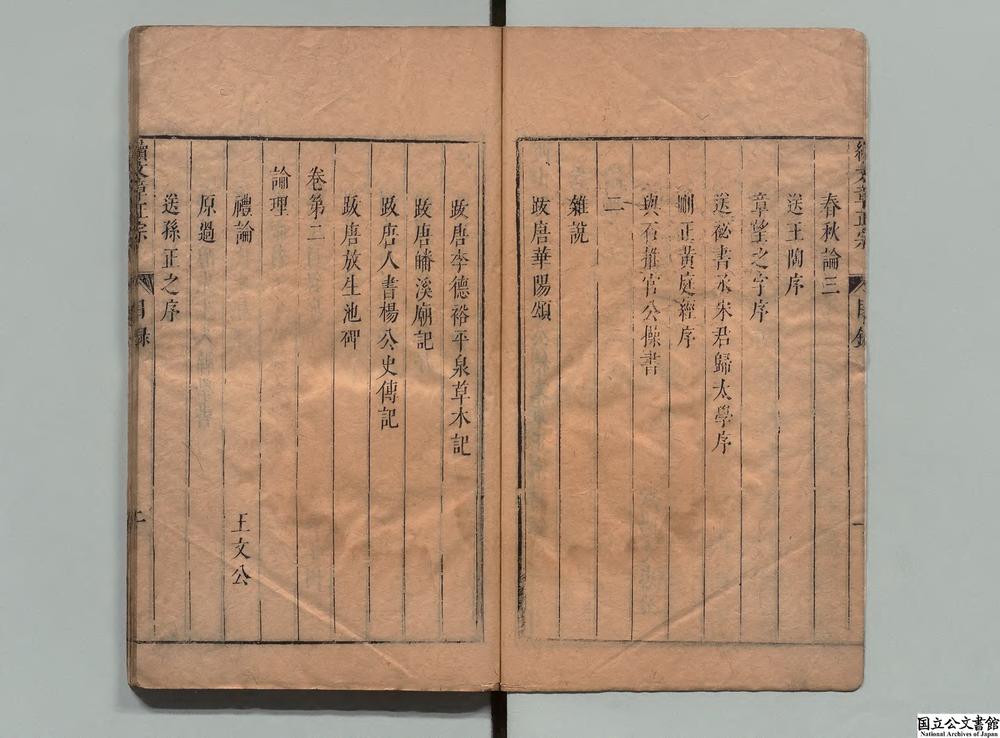 續文章正宗 目錄 一
春秋論三
送王陶序
章望之字序
送祕書丞宋君歸太學序
刪正黃庭經序
與石推官公操書
二
雜說
跋唐華陽頌
跋唐李德裕平泉草木記
跋唐磻溪廟記
跋唐人書楊公史傳記
跋唐放生池碑
卷第二
論理
禮論 王文公
原過
送孫正之序
續文章正宗 目錄 二
国立公文書館
National Archives of Japan